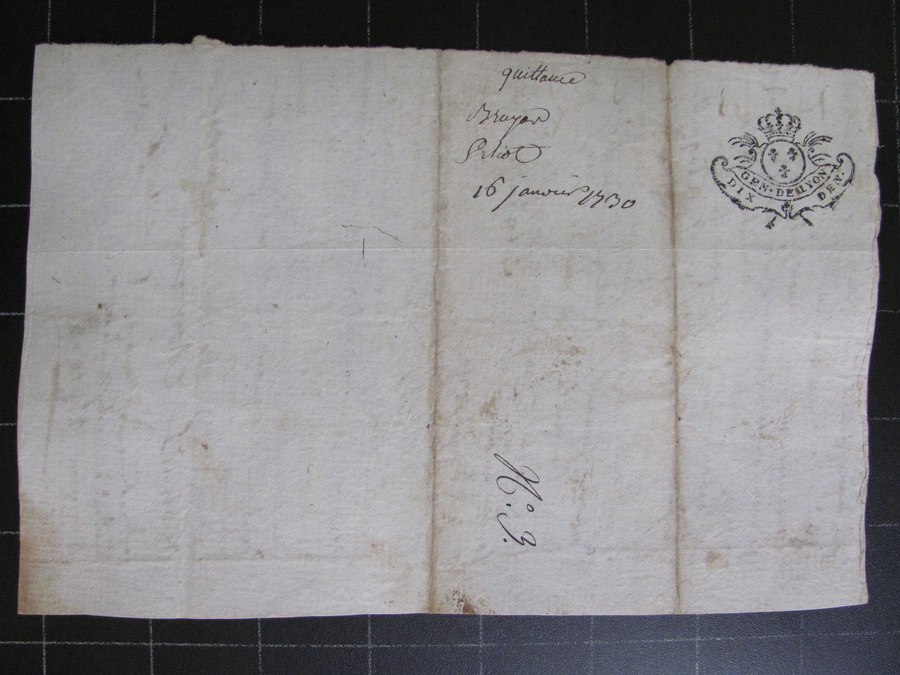 quittance
Bruyas
16 janvier 1730
GEN. DE LYON
DIX DEN.
N.º 3.